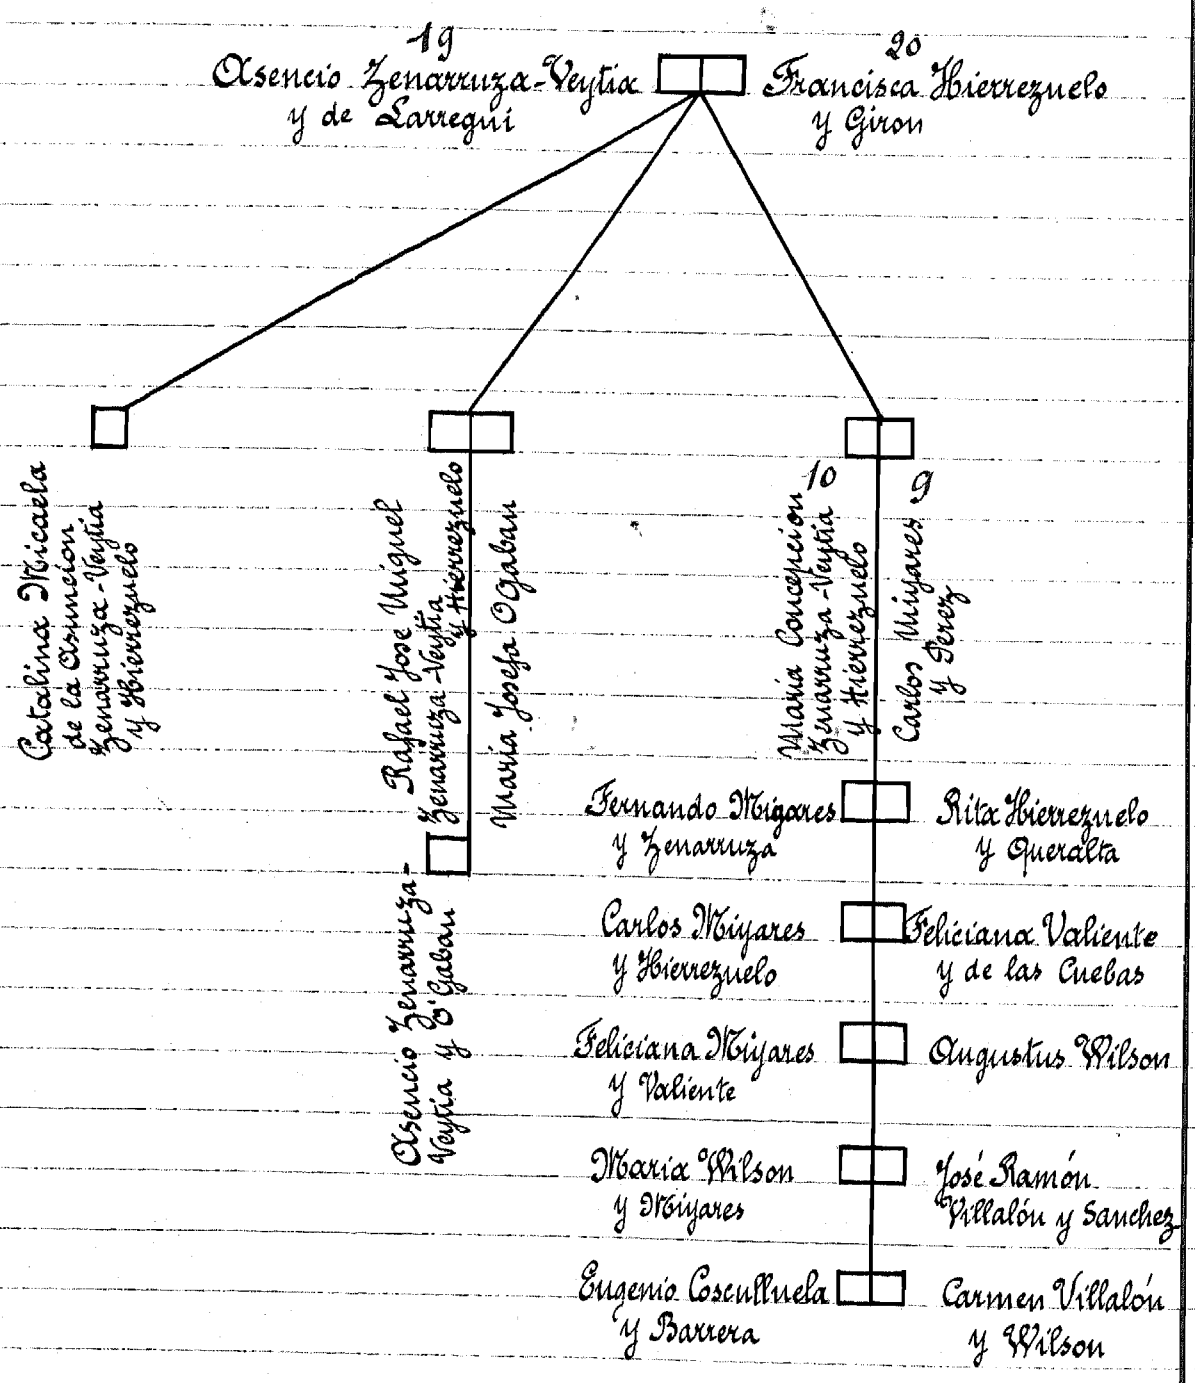 19
20
Asencio Zenarruza-Veytia
y de Larregui
Francisca Hierrezuelo
y Giron
Catalina Micaela
de la Asuncion
Zenarruza-Veytia
y Hierrezuelo
Rafael Jose Miguel
Zenarruza-Veytia
y Hierrezuelo
Maria Josefa O Gaban
10
Maria Concepcion
Zenarruza-Veytia
y Hierrezuelo
9
Carlos Miyares
y Perez
Fernando Miyares
y Zenarruza
Rita Hierrezuelo
y Queralta
Asencio Zenarruza-
Veytia y O'Gaban
Carlos Miyares
y Hierrezuelo
Feliciana Valiente
y de las Cuebas
Feliciana Miyares
y Valiente
Augustus Wilson
Maria Wilson
y Miyares
José Ramón
Villalón y Sanchez
Eugenio Cosculluela
y Barrera
Carmen Villalón
y Wilson